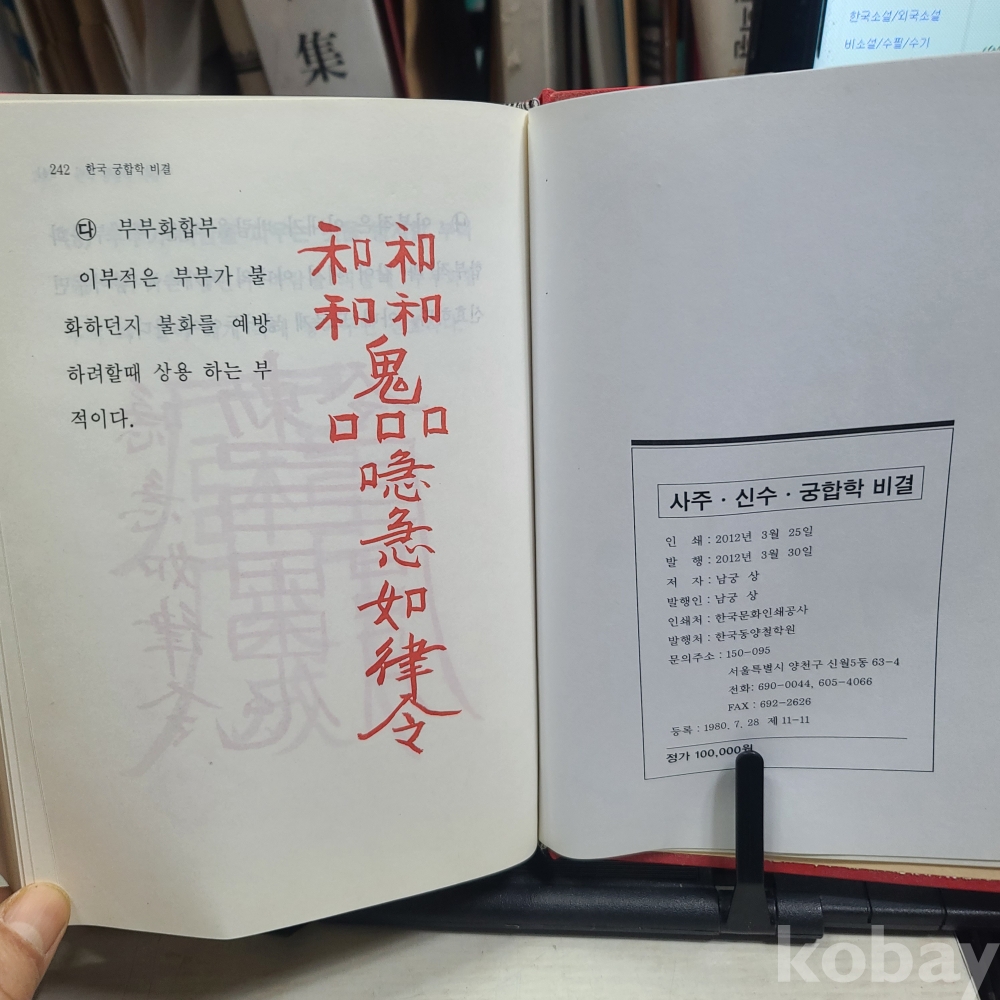 集
한국소설/외국소설
비소설/수필/수기
242 한국 궁합학 비결
㉰ 부부화합부
이부적은 부부가 불
화하던지 불화를 예방
하려할때 상용 하는 부
적이다.
和和
和和
鬼
口口口
急
如
律
令
사주·신수·궁합학 비결
인 쇄 : 2012년 3월 25일
발 행 : 2012년 3월 30일
저 자 : 남궁 상
발행인 : 남궁 상
인쇄처 : 한국문화인쇄공사
발행처 : 한국동양철학원
문의주소 : 150-095
서울특별시 양천구 신월5동 63-4
전화: 690-0044, 605-4066
FAX : 692-2626
등록 : 1980. 7. 28 제 11-11
정가 100,000원
kobay